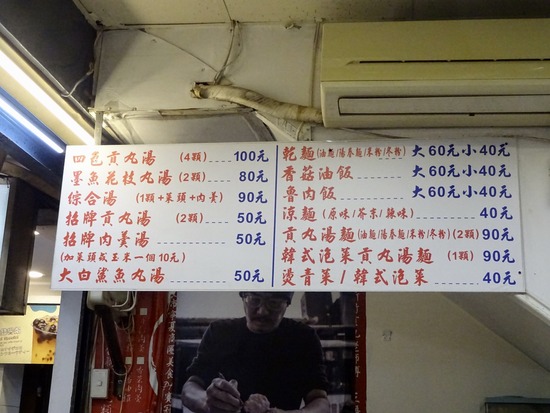 四色貢丸湯 (4顆) 100元
墨魚花枝丸湯 (2顆) 80元
綜合湯 (1顆+菜頭+肉羹) 90元
招牌貢丸湯 (2顆) 50元
招牌肉羹湯 50元
(加菜頭或玉米一個10元)
大白鯊魚丸湯 50元
乾麵(油麵/陽春麵/米粉/冬粉) 大60元小40元
香菇油飯 大60元小40元
魯肉飯 大60元小40元
涼麵 (原味/芥末/辣味) 40元
貢丸湯麵(油麵/陽春麵/米粉/冬粉)(2顆) 90元
韓式泡菜貢丸湯麵 (1顆) 90元
燙青菜/韓式泡菜 40元